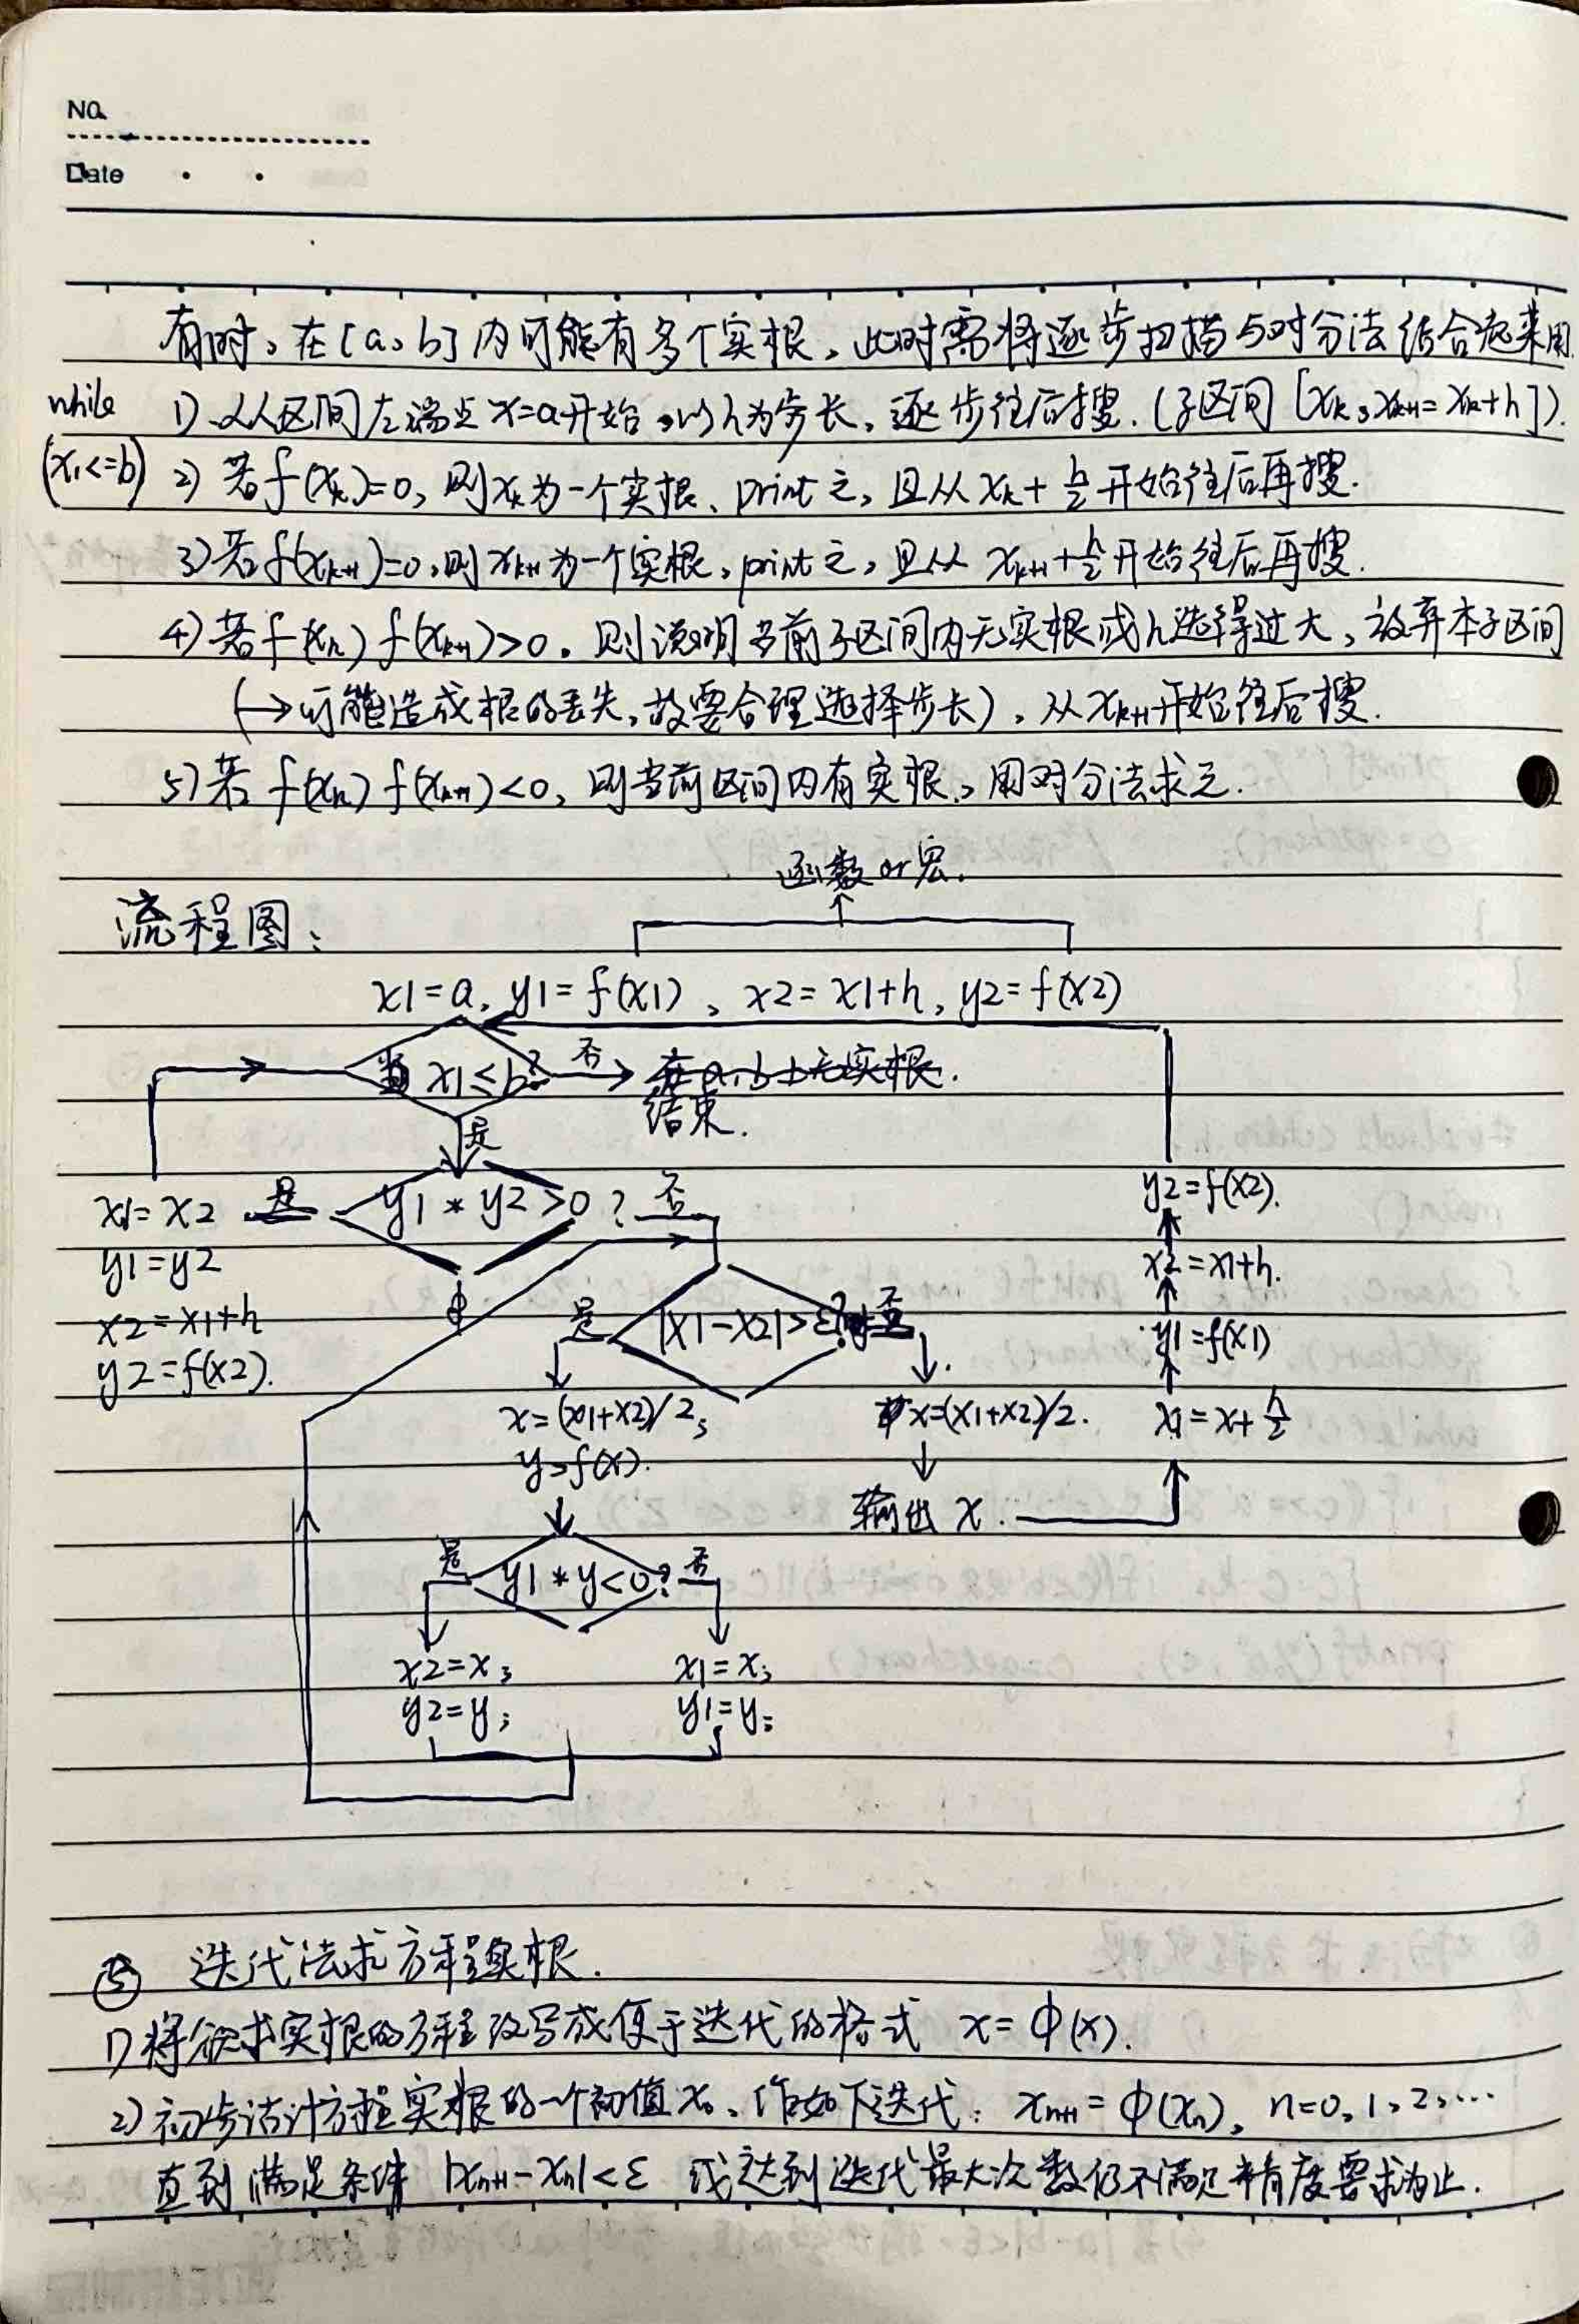 No.
Date
有时，在[a，b]内可能有多个实根，此时需将逐步扫描与对分法结合起来用.
while 1) 从区间左端点x=a开始，以h为步长，逐步往后搜.(子区间[xₖ，xₖ₊₁=xₖ+h]).
(x₁<=b) 2) 若f(xₖ)=0，则xₖ为一个实根、print之，且从xₖ+h/2开始往后再搜.
3) 若f(xₖ₊₁)=0，则xₖ₊₁为一个实根，print之，且从xₖ₊₁+h/2开始往后再搜.
4) 若f(xₖ)f(xₖ₊₁)>0. 则说明当前子区间内无实根或h选得过大，放弃本子区间
(→可能造成根的丢失，故要合理选择步长)，从xₖ₊₁开始往后搜.
5) 若f(xₖ)f(xₖ₊₁)<0，则当前区间内有实根，用对分法求之.
函数or宏.
流程图：
x1=a，y1=f(x1)，x2=x1+h，y2=f(x2)
当x1≤b? 否 在a，b上无实根.
结束.
是
x1=x2 是 y1*y2>0? 否
y1=y2
x2=x1+h
y2=f(x2).
y2=f(x2).
x2=x1+h.
y1=f(x1)
x1=x+h/2
是 |x1-x2|>ε? 否
x=(x1+x2)/2；
y=f(x).
x=(x1+x2)/2.
输出x.
是 y1*y<0? 否
x2=x； x1=x；
y2=y； y1=y；
⑤ 迭代法求方程实根.
1) 将欲求实根的方程改写成便于迭代的格式 x=φ(x).
2) 初步估计方程实根的一个初值x₀、作如下迭代：xₙ₊₁=φ(xₙ)，n=0，1，2，…
直到满足条件 |xₙ₊₁-xₙ|<ε 或达到迭代最大次数仍不满足精度要求为止.